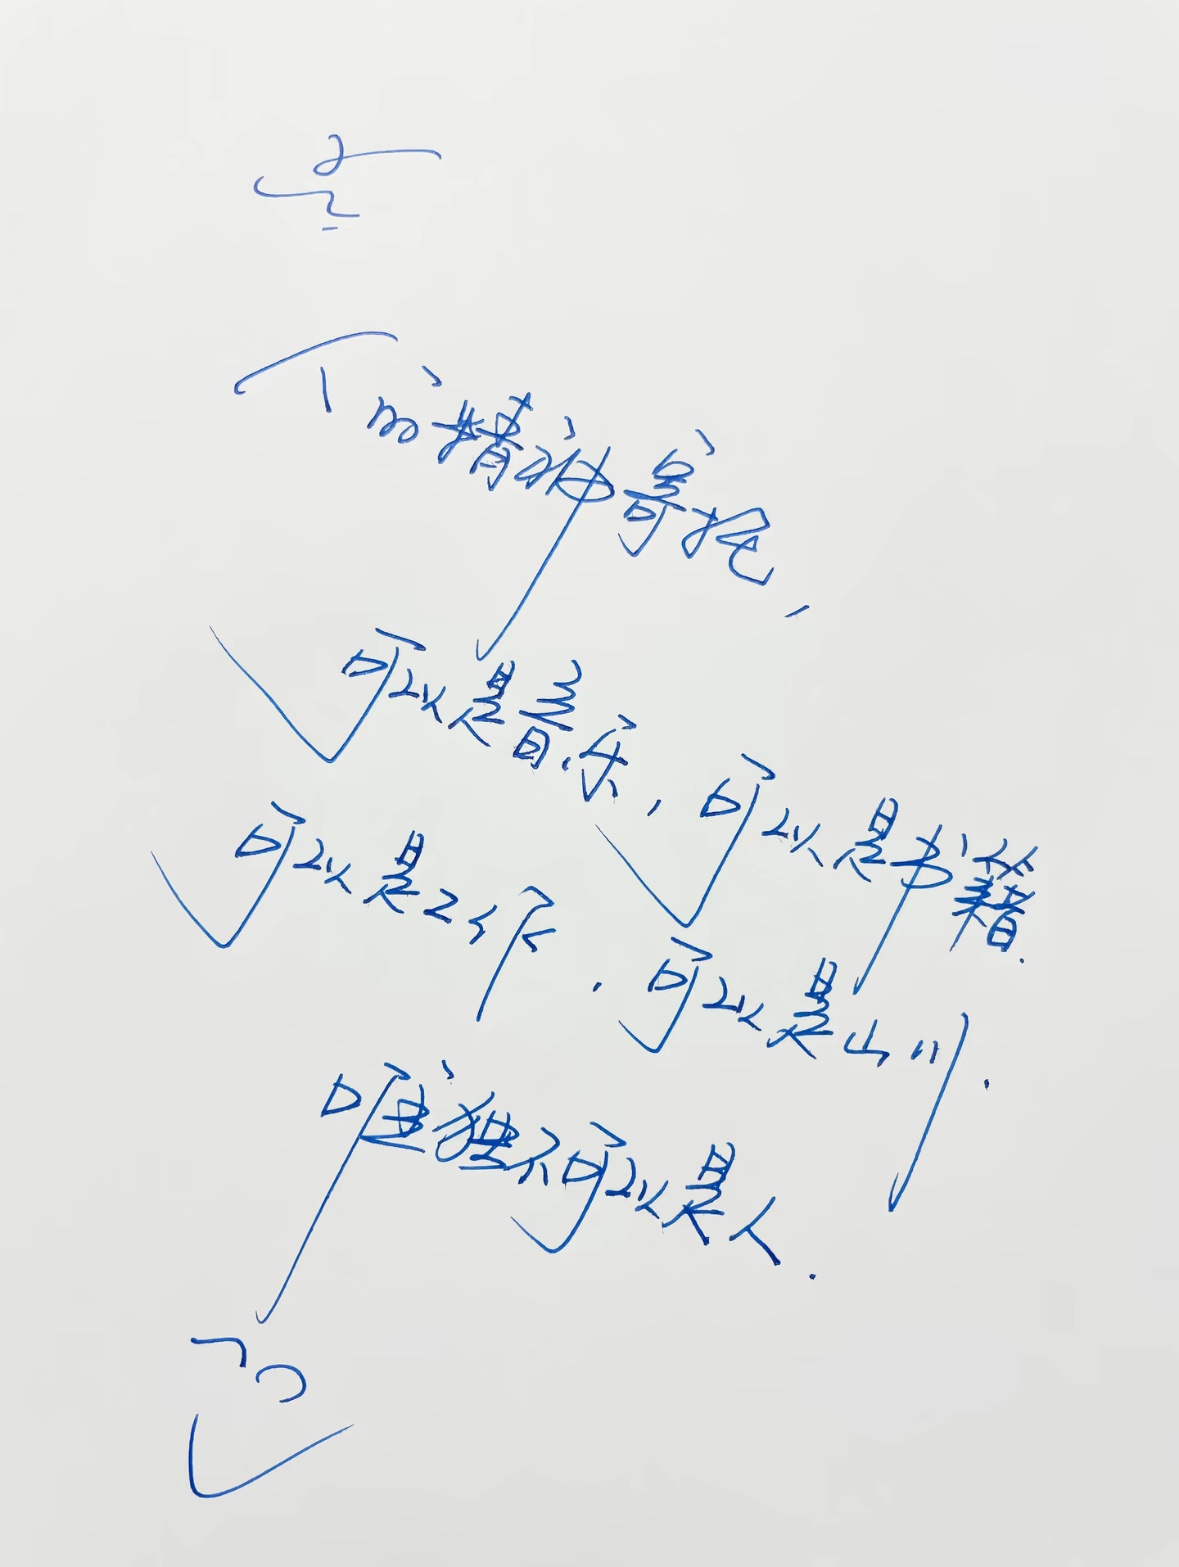 个的精神寄托,
可以是音乐,可以是书籍.
可以是工作.可以是山川.
唯独不可以是人.